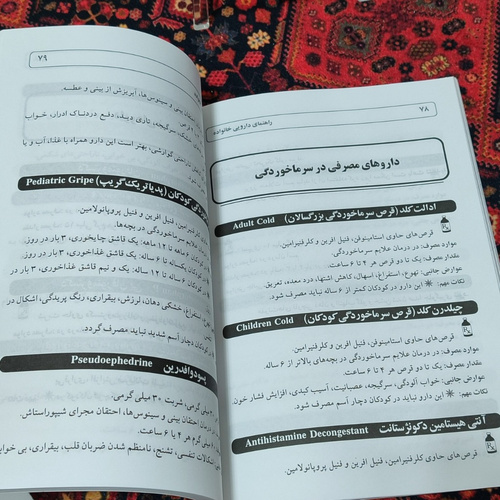 ۷۸
راهنمای دارویی خانواده
داروهای مصرفی در سرماخوردگی
ادالت کلد (قرص سرماخوردگی بزرگسالان) Adult Cold
قرص‌های حاوی استامینوفن، فنیل افرین و کلرفنیرامین.
موارد مصرف: در درمان علایم سرماخوردگی.
مقدار مصرف: یک تا دو قرص هر ۴ تا ۶ ساعت.
عوارض جانبی: تهوع، استفراغ، اسهال، کاهش اشتها، درد معده، تعریق.
نکات مهم: این دارو در کودکان کمتر از ۶ ساله نباید مصرف شود.
چیلدرن کلد (قرص سرماخوردگی کودکان) Children Cold
قرص‌های حاوی استامینوفن، فنیل افرین و کلرفنیرامین.
موارد مصرف: در درمان علایم سرماخوردگی در بچه‌های بالاتر از ۶ ساله.
مقدار مصرف: یک تا دو قرص هر ۴ تا ۶ ساعت.
عوارض جانبی: خواب آلودگی، سرگیجه، عصبانیت، آسیب کبدی، افزایش فشار خون.
نکات مهم: این دارو نباید در کودکان دچار آسم مصرف شود.
آنتی هیستامین دکونژستانت Antihistamine Decongestant
قرص‌های حاوی کلرفنیرامین، فنیل افرین و فنیل پروپانولامین.
۷۹
بینی و سینوس‌ها، آبریزش از بینی و عطسه.
قرص.
سرگیجه، تاری دید، دفع دردناک ادرار، خواب
ناراحتی گوارشی، بهتر است این دارو همراه با غذا، آب و یا
کودکان (پدیاتریک گریپ) Pediatric Gripe
فن، فنیل افرین و فنیل پروپانولامین.
علایم سرماخوردگی در بچه‌ها.
۶ ماهه تا ۱۲ ماهه: یک قاشق چایخوری، ۳ بار در روز.
کودکان یکساله تا ۶ ساله: یک قاشق غذاخوری، ۳ بار در روز.
کودکان ۶ ساله تا ۱۲ ساله: یک و نیم قاشق غذاخوری، ۳ بار در
استفراغ، خشکی دهان، لرزش، بیقراری، رنگ پریدگی، اشکال در
کودکان دچار آسم شدید نباید مصرف گردد.
پسودوافدرین Pseudoephedrine
میلی گرمی، شربت ۳۰ میلی گرمی.
احتقان بینی و سینوس‌ها، احتقان مجرای شیپوراستاش.
میلی گرم هر ۴ تا ۶ ساعت.
مشکلات تنفسی، تشنج، نامنظم شدن ضربان قلب، بیقراری، بی